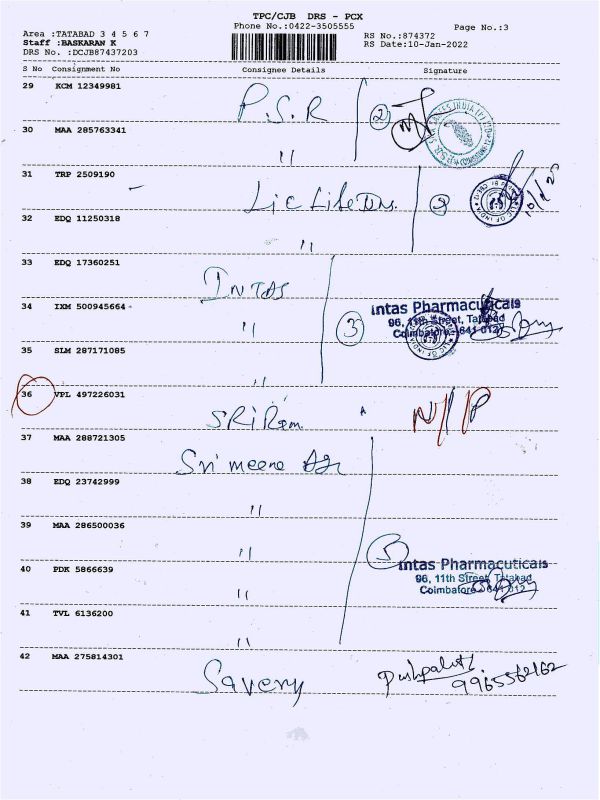 TPC/CJB DRS - PCX
Phone No.:0422-3505555
Page No.:3
Area :TATABAD 3 4 5 6 7
RS No.:874372
Staff :BASKARAN K
RS Date:10-Jan-2022
DRS No. :DCJB87437203
S No Consignment No Consignee Details Signature
29 KCM 12349981 P.S.R 2
30 MAA 285763341 "
31 TRP 2509190 Lic Life 2
32 EDQ 11250318 "
33 EDQ 17360251 INTAS
Intas Pharmaceuticals
34 IXM 500945664 " 3
96, 11th Street, Tatabad
Coimbatore - 641 012
35 SLM 287171085 "
36 VPL 497226031 SRi Ram N/P
37 MAA 288721305 Sri meena
38 EDQ 23742999 "
39 MAA 286500036 " 5
Intas Pharmaceuticals
40 PDK 5866639 "
96, 11th Street, Tatabad
Coimbatore - 641 012
41 TVL 6136200 "
42 MAA 275814301 Savery
9965562162